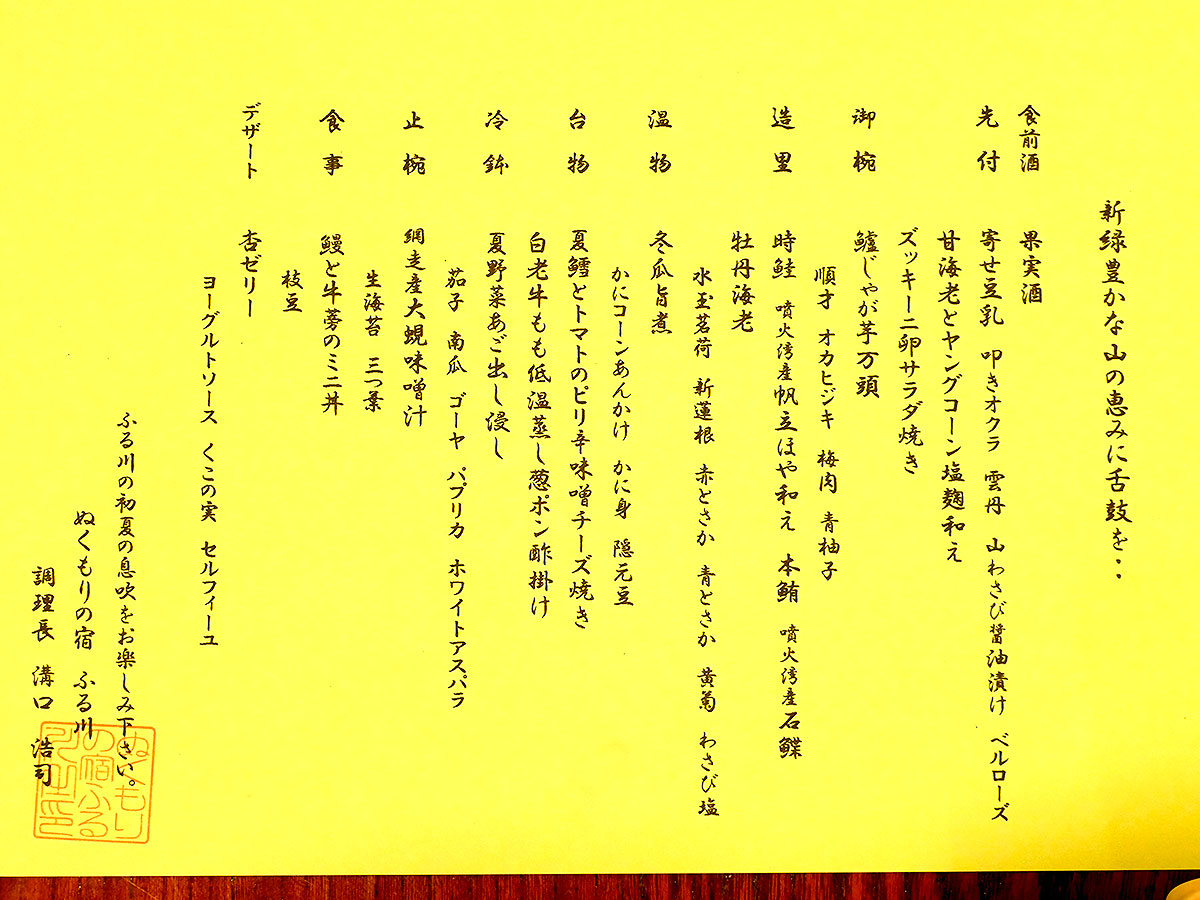 新緑豊かな山の恵みに舌鼓を‥
食前酒 果実酒
先付 寄せ豆乳 叩きオクラ 雲丹 山わさび醤油漬け ベルローズ
甘海老とヤングコーン塩麹和え
ズッキーニ卵サラダ焼き
御椀 鱸じゃが芋万頭
順才 オカヒジキ 梅肉 青柚子
造里 時鮭 噴火湾産帆立ほや和え 本鮪 噴火湾産石鰈
牡丹海老
水玉茗荷 新蓮根 赤とさか 青とさか 黄菊 わさび塩
温物 冬瓜旨煮
かにコーンあんかけ かに身 隠元豆
台物 夏鱈とトマトのピリ辛味噌チーズ焼き
白老牛もも低温蒸し葱ポン酢掛け
冷鉢 夏野菜あご出し浸し
茄子 南瓜 ゴーヤ パプリカ ホワイトアスパラ
止椀 網走産大蜆味噌汁
生海苔 三つ葉
食事 鰻と牛蒡のミニ丼
枝豆
デザート 杏ゼリー
ヨーグルトソース くこの実 セルフィーユ
ふる川の初夏の息吹をお楽しみ下さい。
ぬくもりの宿 ふる川
調理長 溝口 浩司
ぬくもり
の宿ふる
川之印